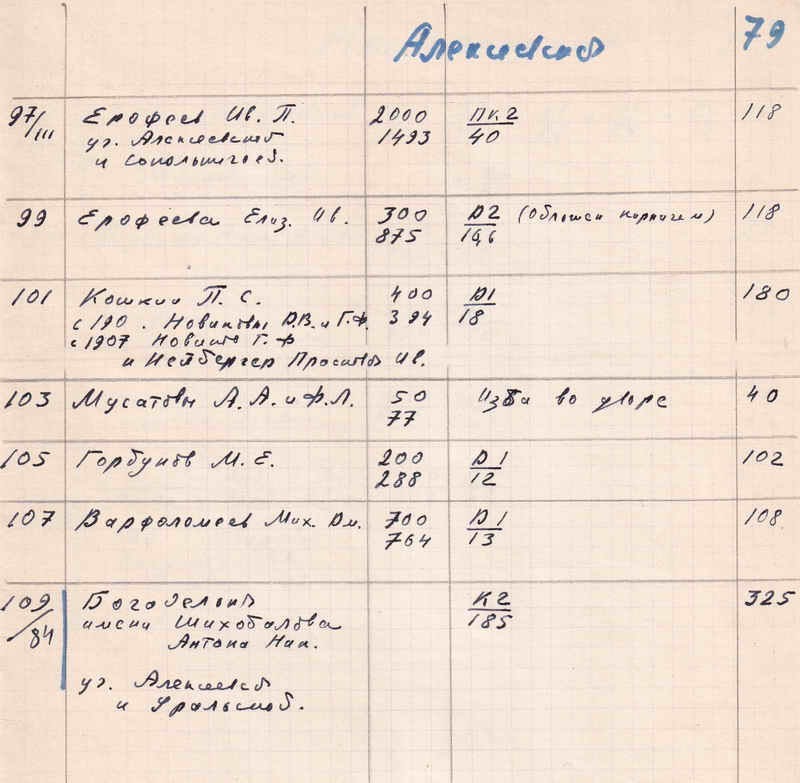 Алексеевской 79
97/III Ерофеев Ив. П. 2000 Пк.2 118
уг. Алексеевской 1493 40
и Сокольничей.
99 Ерофеева Елиз. Ив. 300 Д2 118
875
101 Кошкин П. С. 400 Д1 180
с 190 . Новиковы Д.В. и Г.Ф. 394 18
с 1907 Новиков Г. Ф
и Нейбергер Ив.
103 Мусатовы А. А. и Ф. Л. 50 Изба во дворе 40
77
105 Горбунов М. Е. 200 Д1 102
288 12
107 Варфоломеев Мих. Дм. 700 Д1 108
764 13
109 Богадельня К2 325
/84 имени Шихобалова 185
Антона Ник.
уг. Алексеевской
и Уральской.